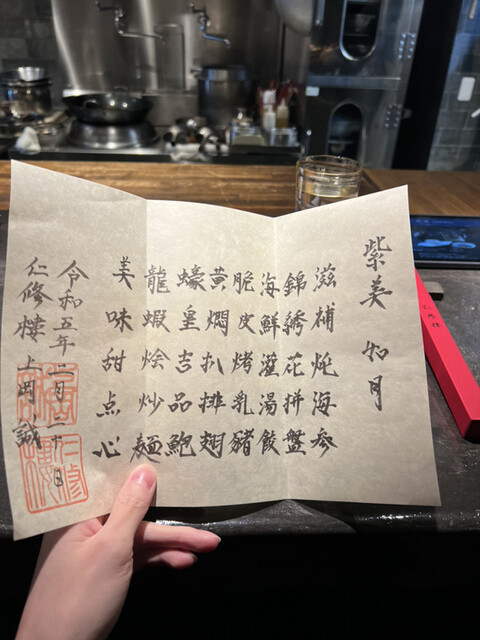 紫美 如月
滋補炖海参
錦綉花拼盤
海鮮灌湯餃
脆皮烤乳豬
黄燜扒排翅
蠔皇吉品鮑
龍蝦烩炒麺
美味甜点心
令和五年二月二十日
仁修樓上岡誠
仁修樓